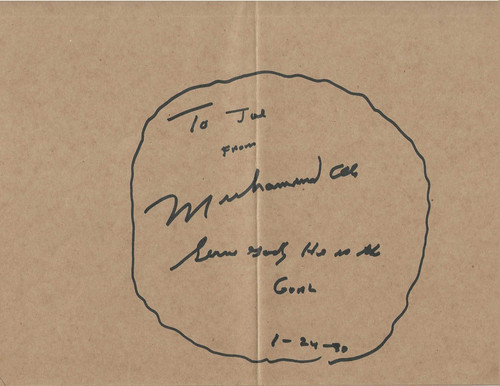 To Joe
From
Muhammad Ali
Serve God, He is the
Goal
1-24-90